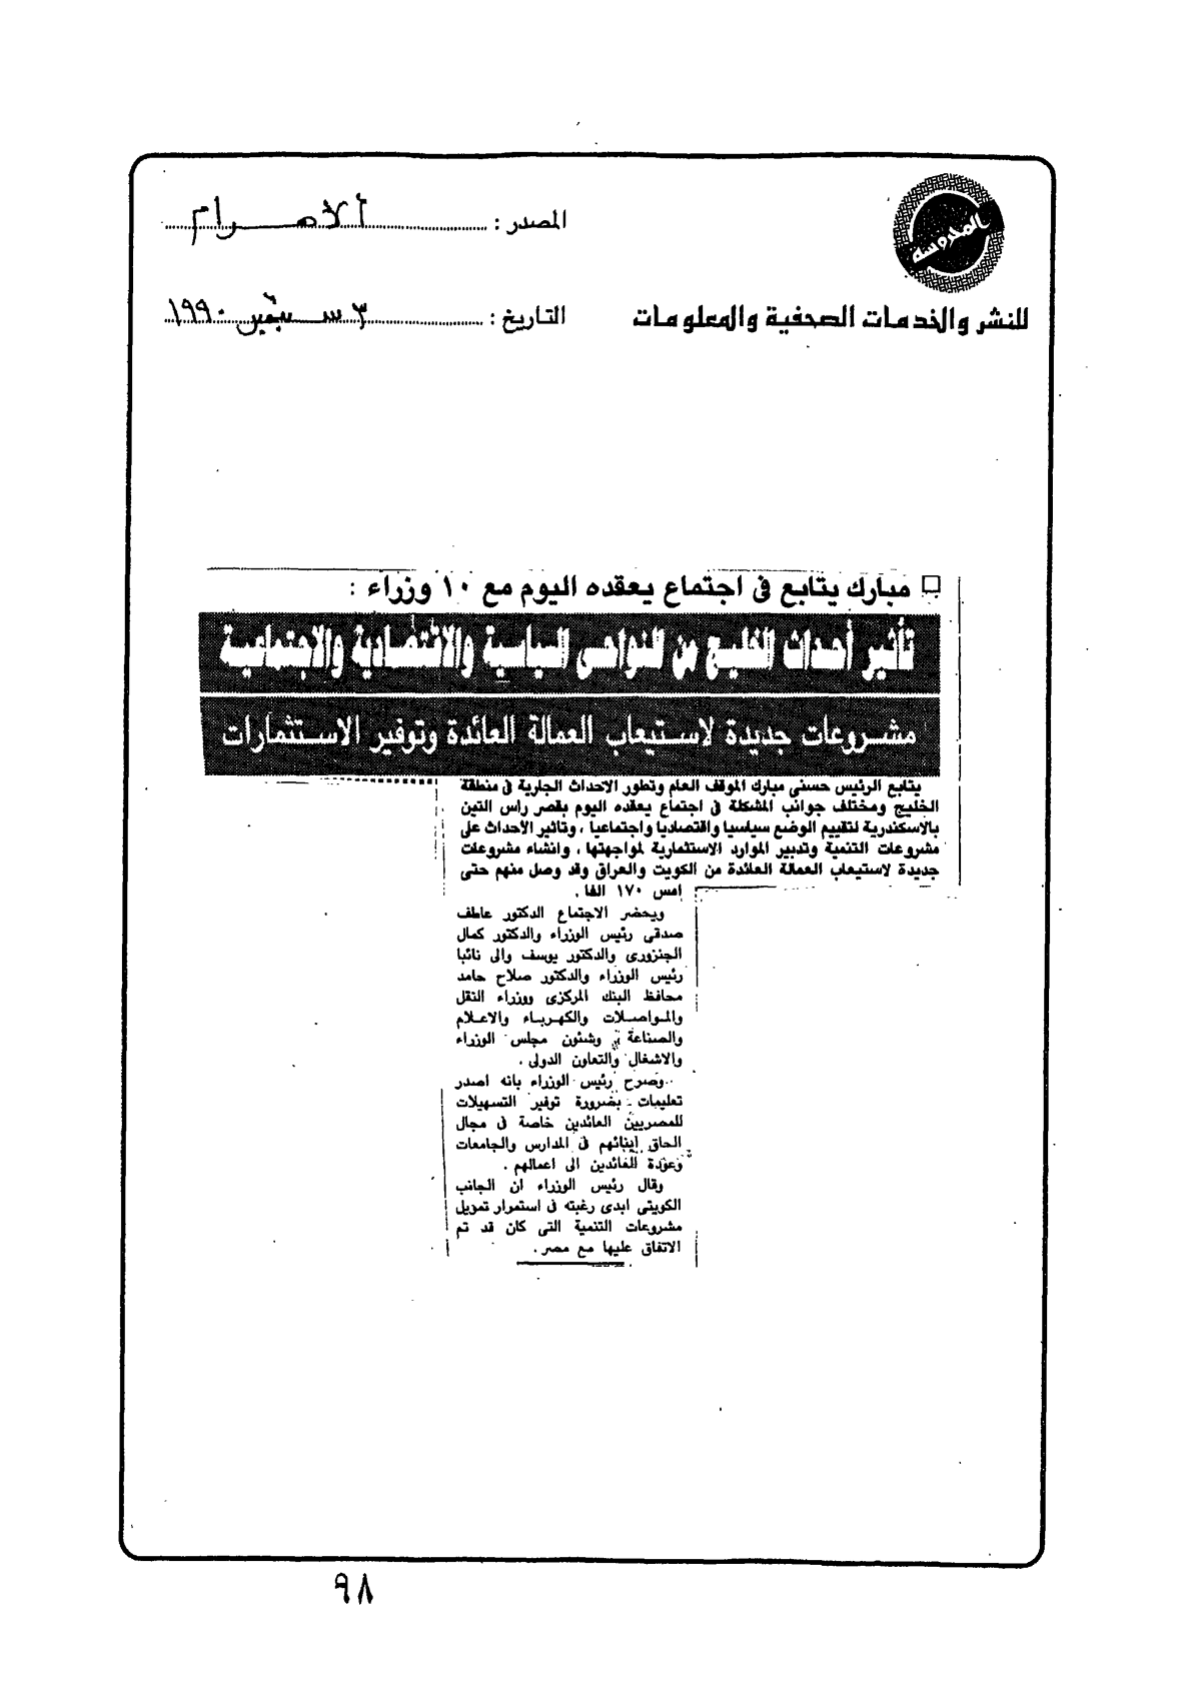 المحروسة
للنشر والخدمات الصحفية والمعلومات
المصدر : الأهرام
التاريخ : ٣ سبتمبر ١٩٩٠
مبارك يتابع فى اجتماع يعقده اليوم مع ١٠ وزراء :
تأثير أحداث الخليج من النواحى السياسية والاقتصادية والاجتماعية
مشروعات جديدة لاستيعاب العمالة العائدة وتوفير الاستثمارات
يتابع الرئيس حسنى مبارك الموقف العام وتطور الاحداث الجارية فى منطقة
الخليج ومختلف جوانب المشكلة فى اجتماع يعقده اليوم بقصر راس التين
بالاسكندرية لتقييم الوضع سياسيا واقتصاديا واجتماعيا ، وتاثير الاحداث على
مشروعات التنمية وتدبير الموارد الاستثمارية لمواجهتها ، وانشاء مشروعات
جديدة لاستيعاب العمالة العائدة من الكويت والعراق وقد وصل منهم حتى
امس ١٧٠ الفا .
ويحضر الاجتماع الدكتور عاطف
صدقى رئيس الوزراء والدكتور كمال
الجنزورى والدكتور يوسف والى نائبا
رئيس الوزراء والدكتور صلاح حامد
محافظ البنك المركزى ووزراء النقل
والمواصلات والكهرباء والاعلام
والصناعة وشئون مجلس الوزراء
والاشغال والتعاون الدولى .
وصرح رئيس الوزراء بانه اصدر
تعليمات بضرورة توفير التسهيلات
للمصريين العائدين خاصة فى مجال
الحاق ابنائهم فى المدارس والجامعات
وعودة العائدين الى اعمالهم .
وقال رئيس الوزراء ان الجانب
الكويتى ابدى رغبته فى استمرار تمويل
مشروعات التنمية التى كان قد تم
الاتفاق عليها مع مصر .
٩٨